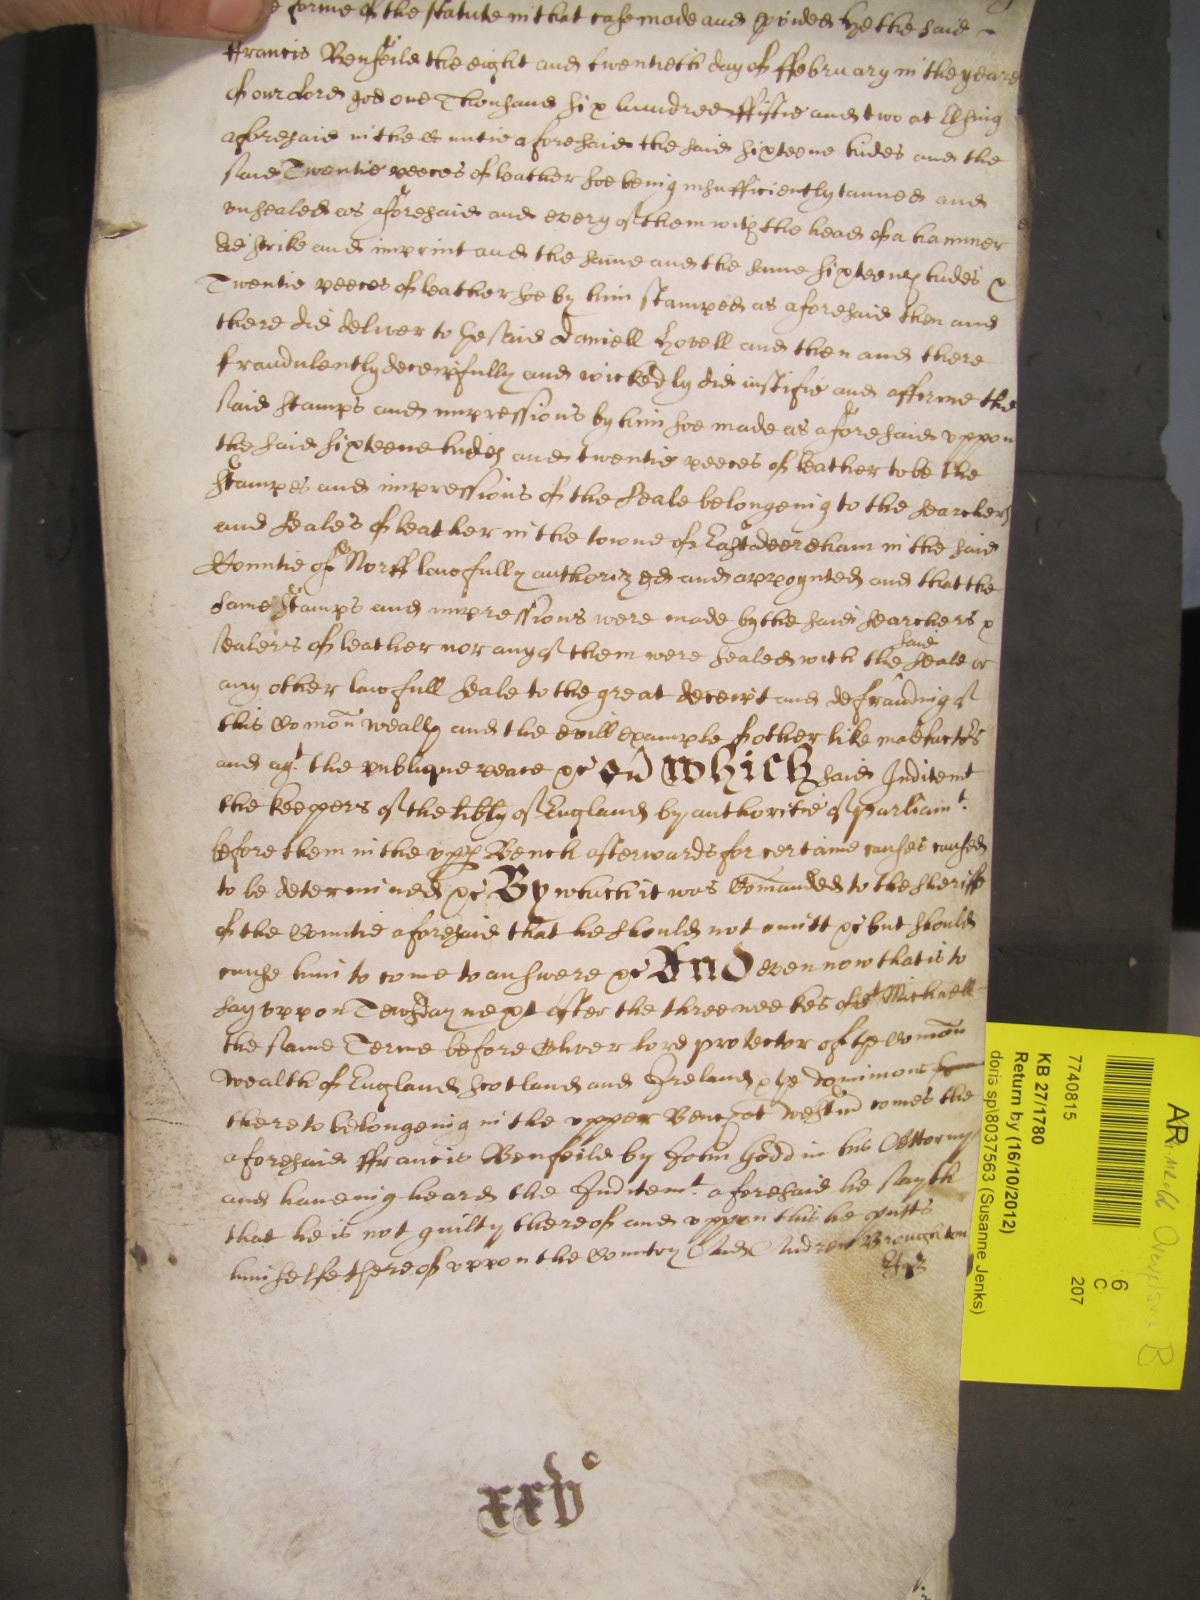 forme of the statute in that case made and pvided he the said
ffrancis Benfeild the eight and twentieth day of ffebruary in the yeare
of our Lord god one Thousand six hundred ffiftie and two at
aforesaid in the Countie aforesaid the said sixteene hides and the
said Twentie peeces of leather soe being insufficiently tanned and
unsealed as aforesaid and every of them with the head of a hammer
did strike and imprint and the same and the same sixteene hides &
Twentie peeces of leather soe by him stamped as aforesaid then and
there did deliver to the said Daniell Lovell and then and there
fraudulently deceiptfully and wickedly did iustifie and afferme the
said stamps and impressions by him soe made as aforesaid uppon
the said sixteene hides and twentie peeces of leather to be the
Stampes and impressions of the Seale belongeing to the searchers
and Seales of leather in the towne of East deereham in the said
Countie of Norff lawfully authorized and appoynted and that the
same Stamps and impressions were made by the said searchers &
sealers of leather nor any of them were sealed with the said Seale or
any other lawfull Seale to the great deceipt and defrauding of
this Comon weally and the evill example of other like malefactors
and agt the publique peace &c On which said Inditemt
the keepers of the libty of England by authoritie of Parliamt
before them in the upp Bench afterwards for certaine causes caused
to be determined &c By which it was Comanded to the sheriffe
of the Countie aforesaid that he should not omitt &c but should
cause him to come to answere &c And even now that is to
say uppon Tewsday next after the three weekes of st Michaell
the same Terme before Oliver lord protector of the Comon
wealth of England Scotland and Ireland & the dominions
thereto belongeing in the upper Bench at Westm comes the
aforesaid ffrancis Benfeild by John Godd in his Attorny
and haveing heard the Inditemt aforesaid he sayth
that he is not guilty thereof and uppon this he putts
himselfe thereof uppon the Country And Andrew Broughton
xxv
AR
7740815
KB 27/1780
Return by (16/10/2012)
doris sp\8037563 (Susanne Jenks)
6
C
207
B